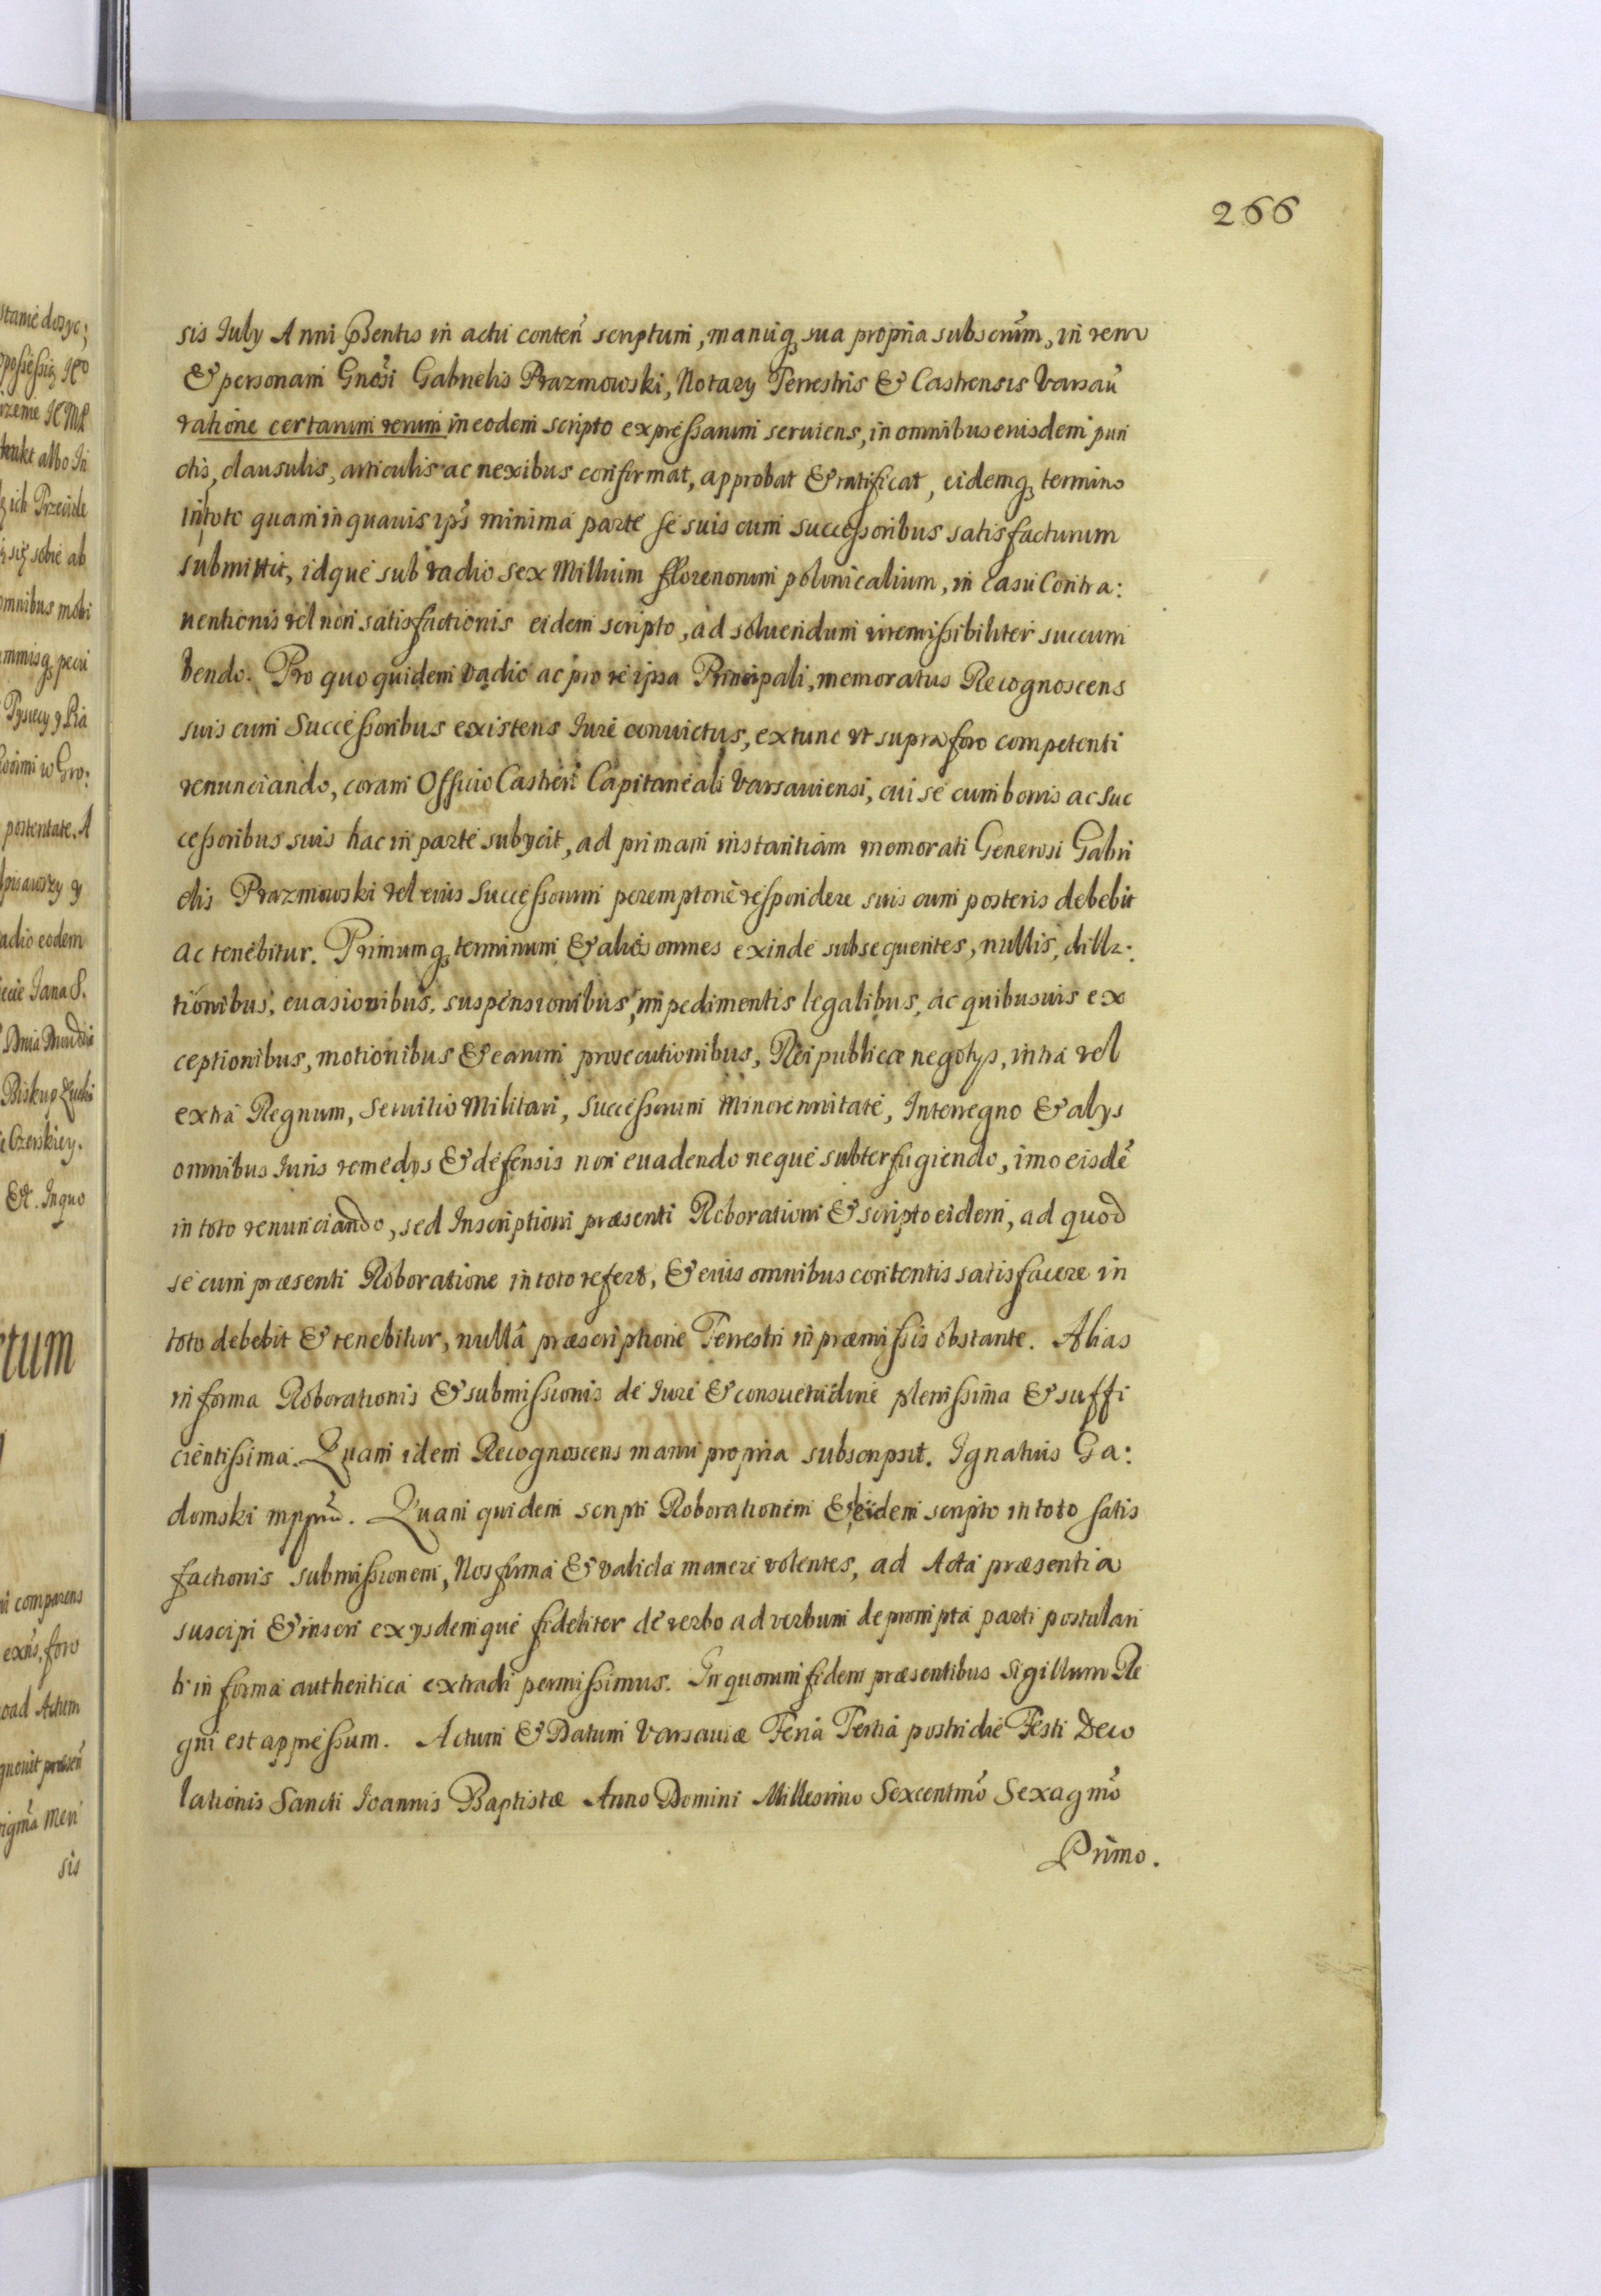 266
sis July Anni psentis in actu conteñ scriptum, manuq sua propria subscrim, in rem
& personam Gnosi Gabrielis Prazmowski, Notary Terrestris & Castrensis Varsaũ
ratione certarum rerum in eodem scripto expressarum seruiens, in omnibus euisdem pun
ctis, clausulis, articulis ac nexibus confirmat, approbat & ratificat, eidemq termino
in toto quam in quauis ips minima parte se suis cum successoribus satisfacturum
submittit, idque sub vadio sex Millium florenorum polonicalium, in casu Contra:
uentionis vel non satisfactionis eidem scripto, ad soluendum irremissibiliter succum
bendo. Pro quo quidem vadio ac pro re ipsa Principali, memoratus Recognoscens
suis cum Successoribus existens Iure conuictus, extunc vt supra foro competenti
renunciando, coram Officio Castreñ Capitaneali Varsauiensi, cui se cum bonis ac suc
cessoribus suis hac in parte subycit, ad primam instantiam memorati Generosi Gabri
elis Prazmowski vel eius Successorum peremptorie respondere suis cum posteris debebit
ac tenebitur. Primumq terminum & alios omnes exinde subsequentes, nullis, dilla:
tionibus, euasionibus, suspensionibus, impedimentis legalibus, ac quibusuis ex
ceptionibus, motionibus & earum prosecutionibus, Rei publicæ negotys, intra vel
extra Regnum, Seruitio Militari, Successorum Minorennitate, Interregno & alys
omnibus Iuris remedys & defensis non euadendo neque subterfugiendo, imo eisdẽ
in toto renunciando, sed Inscriptioni præsenti Roborationi & scripto eidem, ad quod
se cum præsenti Roboratione in toto refert, & eius omnibus contentis satisfacere in
toto debebit & tenebitur, nullâ præscriptione Terrestri in præmissis obstante. Alias
in forma Roborationis & submissionis de Iure & consuetudine plenissima & suffi
cientissima. Quam idem Recognoscens manu propria subscripsit. Ignatius Ga:
domski mppria. Quam quidem scripti Roborationem & eidem scripto in toto satis
factionis submissionem, Nos firma & valida manere volentes, ad Acta præsentia
suscipi & inseri exysdemque fideliter de verbo ad verbum deprompta parti postulan
ti in forma authentica extradi permissimus. In quorum fidem præsentibus Sigillum Re
gni est appressum. Actum & Datum Varsauiæ Feria Tertia postridie Festi Deco
lationis Sancti Ioannis Baptistæ Anno Domini Millesimo Sexcentmo Sexagmo
Primo.